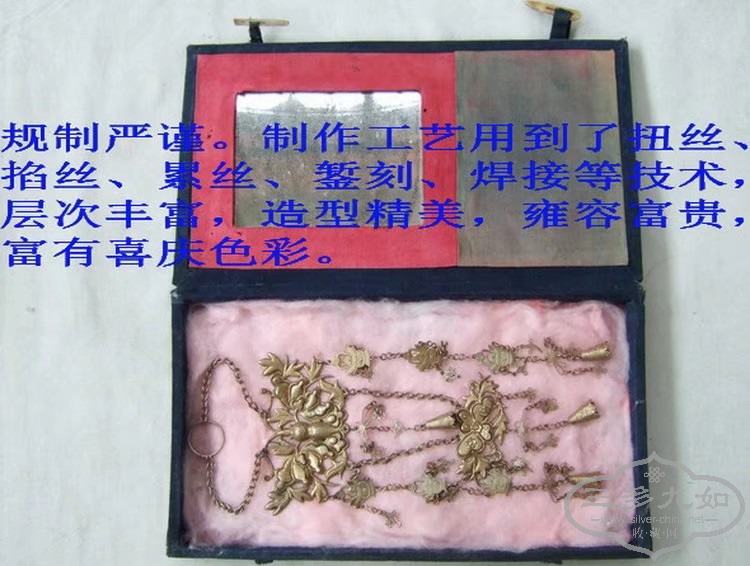 规制严谨。制作工艺用到了扭丝、
掐丝、累丝、錾刻、焊接等技术，
层次丰富，造型精美，雍容富贵，
富有喜庆色彩。
三多九如
www.silver-china.net
收·藏·网